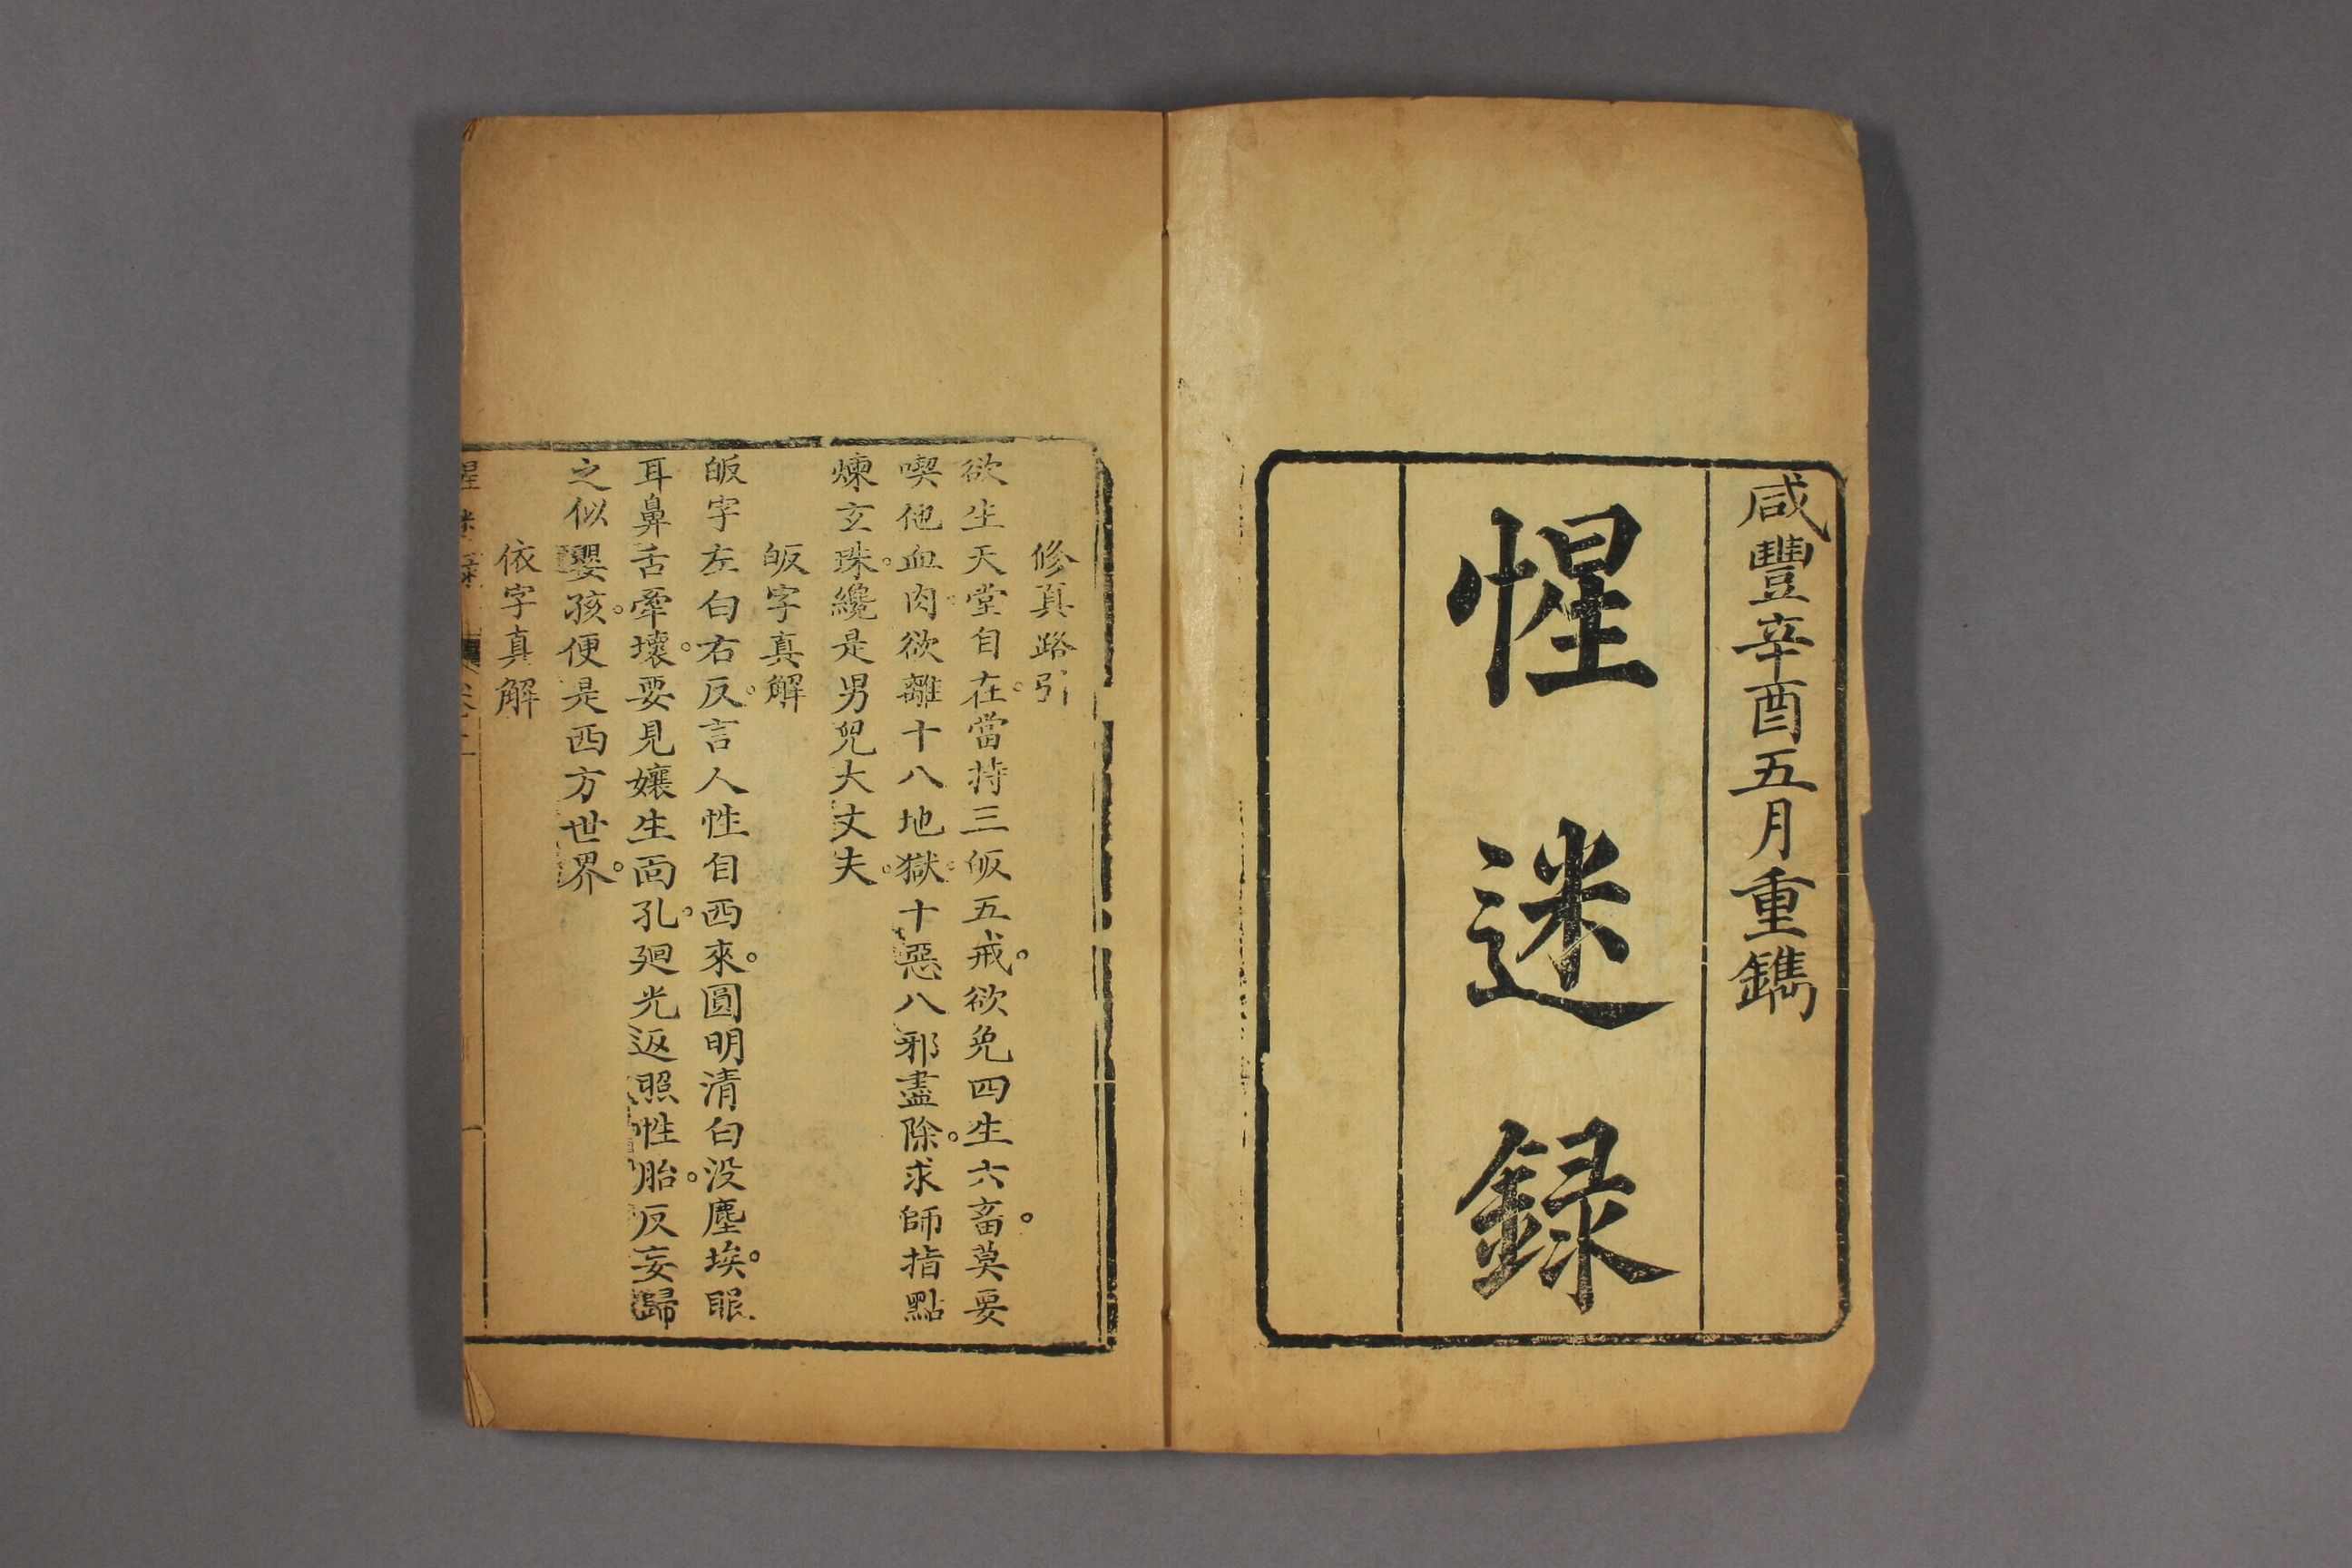 咸豐辛酉五月重鐫
惺迷録
修真路引
欲生天堂自在。當持三皈五戒。欲免四生六畜。莫要
喫他血肉。欲離十八地獄。十惡八邪盡除。求師指點
煉玄珠。纔是男兒大丈夫。
皈字真解
皈字左白右反。言人性自西來。圓明清白没塵埃。眼
耳鼻舌牽壞。要見孃生面孔。廻光返照性胎。反妄歸
之似嬰孩。便是西方世界。
依字真解